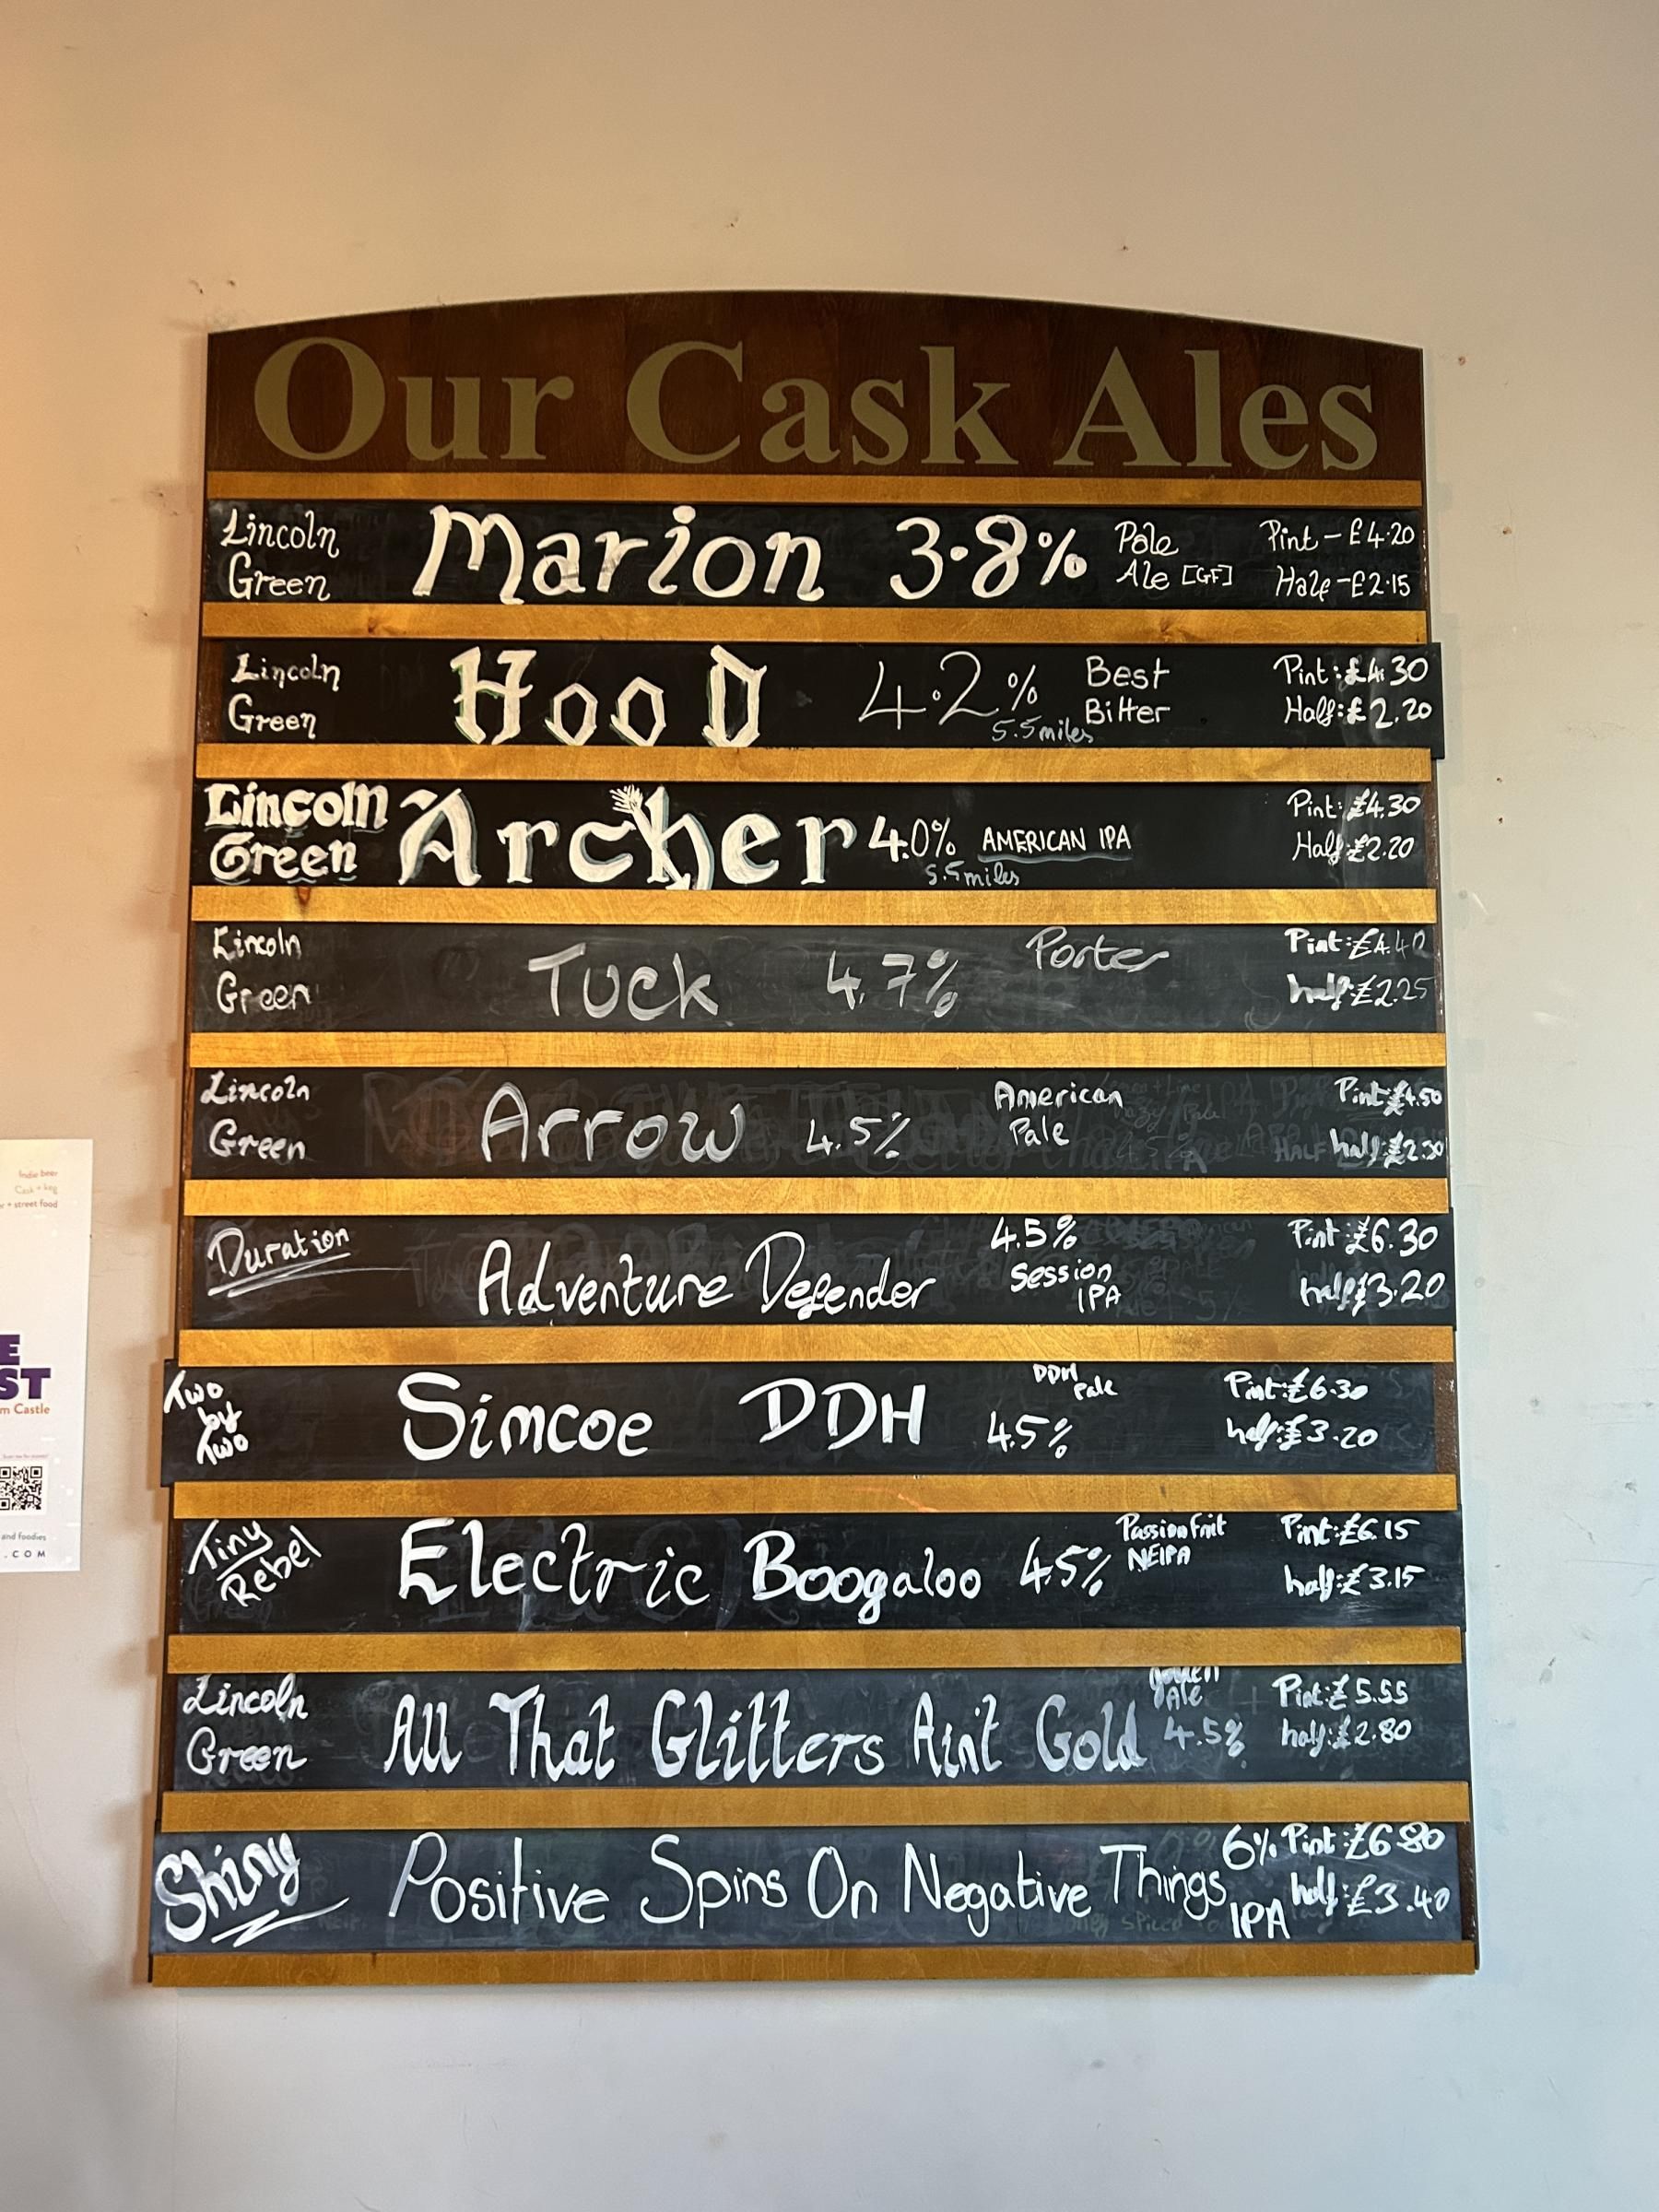 Our Cask Ales
Lincoln Green Marion 3.8% Pale Ale [GF] Pint - £4.20
Half - £2.15
Lincoln Green HooD 4.2% Best Bitter Pint: £4.30
5.5miles Half: £2.20
Lincoln Green Archer 4.0% AMERICAN IPA Pint: £4.30
5.5miles Half: £2.20
Lincoln Green Tuck 4.7% Porter Pint: £4.40
half: £2.25
Lincoln Green Arrow 4.5% American Pale Pint: £4.50
half: £2.30
Duration Adventure Defender 4.5% Session IPA Pint: £6.30
half: £3.20
Two by Two Simcoe DDH DDH Pale 4.5% Pint: £6.30
half: £3.20
Tiny Rebel Electric Boogaloo 4.5% Passionfruit NEIPA Pint: £6.15
half: £3.15
Lincoln Green All That Glitters Ain't Gold Golden Ale 4.5% Pint: £5.55
half: £2.80
Shiny Positive Spins On Negative Things 6% IPA Pint: £6.80
half: £3.40
Indie beer
Cask + keg
+ street food
ST
m Castle
and foodies
.COM